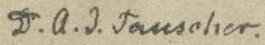 D. A. J. Tauscher.